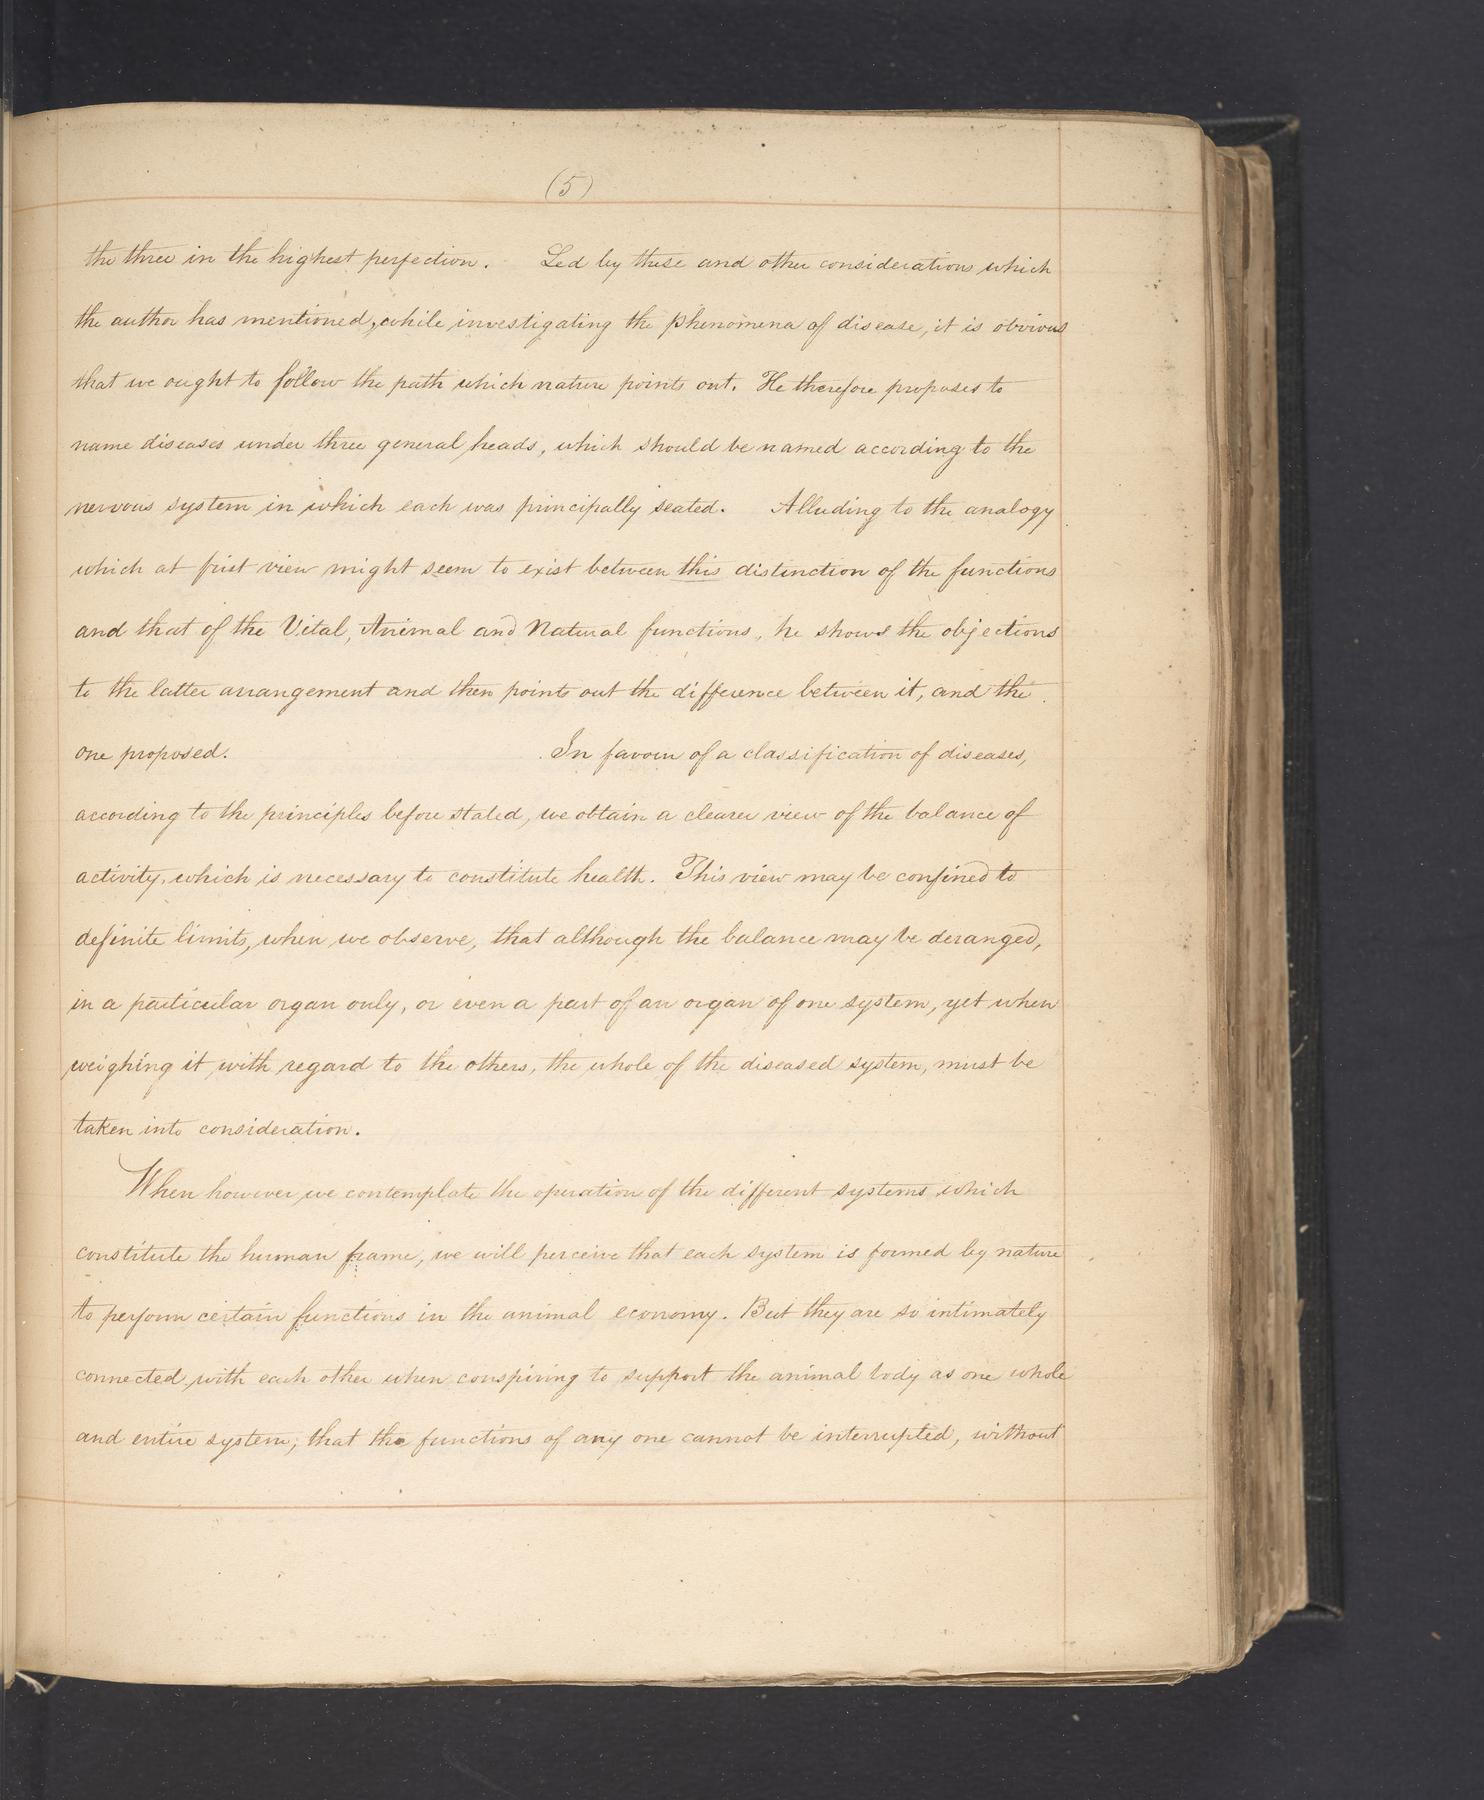 (5)
the three in the highest perfection. Led by these and other considerations which
the author has mentioned, while investigating the phenomena of disease, it is obvious
that we ought to follow the path which nature points out. He therefore proposes to
name diseases under three general heads, which should be named according to the
nervous system in which each was principally seated. Alluding to the analogy
which at first view might seem to exist between this distinction of the functions
and that of the Vital, Animal and Natural functions, he shows the objections
to the latter arrangement and then points out the difference between it, and the
one proposed. In favour of a classification of diseases,
according to the principles before stated, we obtain a clearer view of the balance of
activity, which is necessary to constitute health. This view may be confined to
definite limits, when we observe, that although the balance may be deranged,
in a particular organ only, or even a part of an organ of one system, yet when
weighing it with regard to the others, the whole of the diseased system, must be
taken into consideration.
When however we contemplate the operation of the different systems which
constitute the human frame, we will perceive that each system is formed by nature
to perform certain functions in the animal economy. But they are so intimately
connected with each other when conspiring to support the animal body as one whole
and entire system, that the functions of any one cannot be interrupted, without